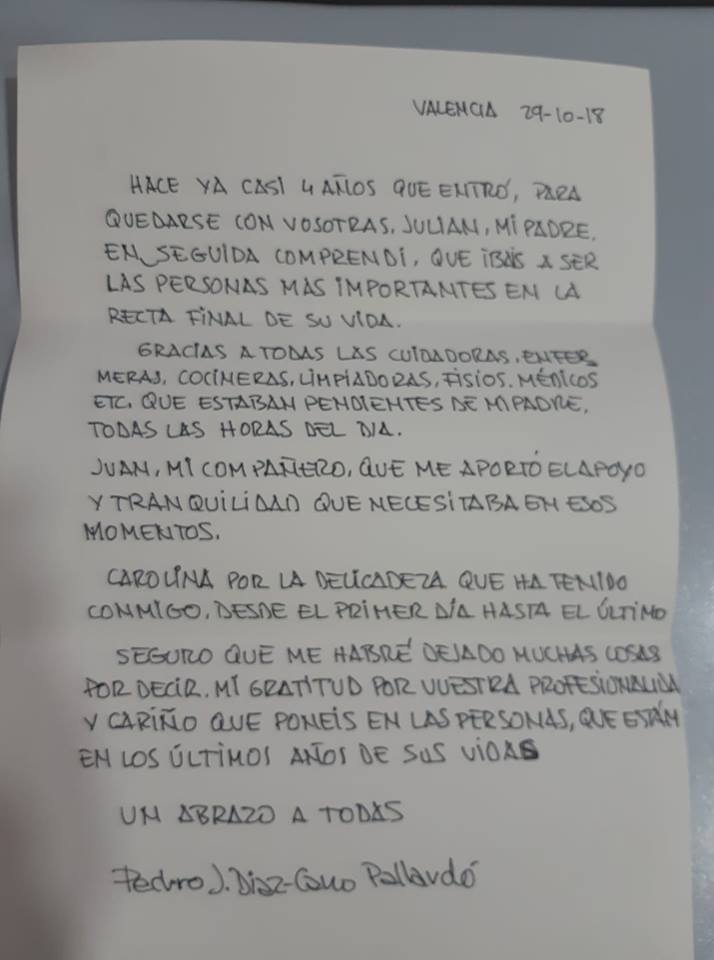 VALENCIA 29-10-18
HACE YA CASI 4 AÑOS QUE ENTRÓ, PARA
QUEDARSE CON VOSOTRAS, JULIAN, MI PADRE.
EN SEGUIDA COMPRENDI, QUE IBAIS A SER
LAS PERSONAS MAS IMPORTANTES EN LA
RECTA FINAL DE SU VIDA.
GRACIAS A TODAS LAS CUIDADORAS, ENFER
MERAS, COCINERAS, LIMPIADORAS, FISIOS. MÉDICOS
ETC. QUE ESTABAN PENDIENTES DE MI PADRE,
TODAS LAS HORAS DEL DIA.
JUAN, MI COMPAÑERO, QUE ME APORTÓ EL APOYO
Y TRANQUILIDAD QUE NECESITABA EN ESOS
MOMENTOS.
CAROLINA POR LA DELICADEZA QUE HA TENIDO
CONMIGO, DESDE EL PRIMER DÍA HASTA EL ÚLTIMO
SEGURO QUE ME HABRÉ DEJADO MUCHAS COSAS
POR DECIR. MI GRATITUD POR VUESTRA PROFESIONALIDA
Y CARIÑO QUE PONEIS EN LAS PERSONAS, QUE ESTÁN
EN LOS ÚLTIMOS AÑOS DE SUS VIDAS
UN ABRAZO A TODAS
Pedro J. Diaz-Cano Pallardó